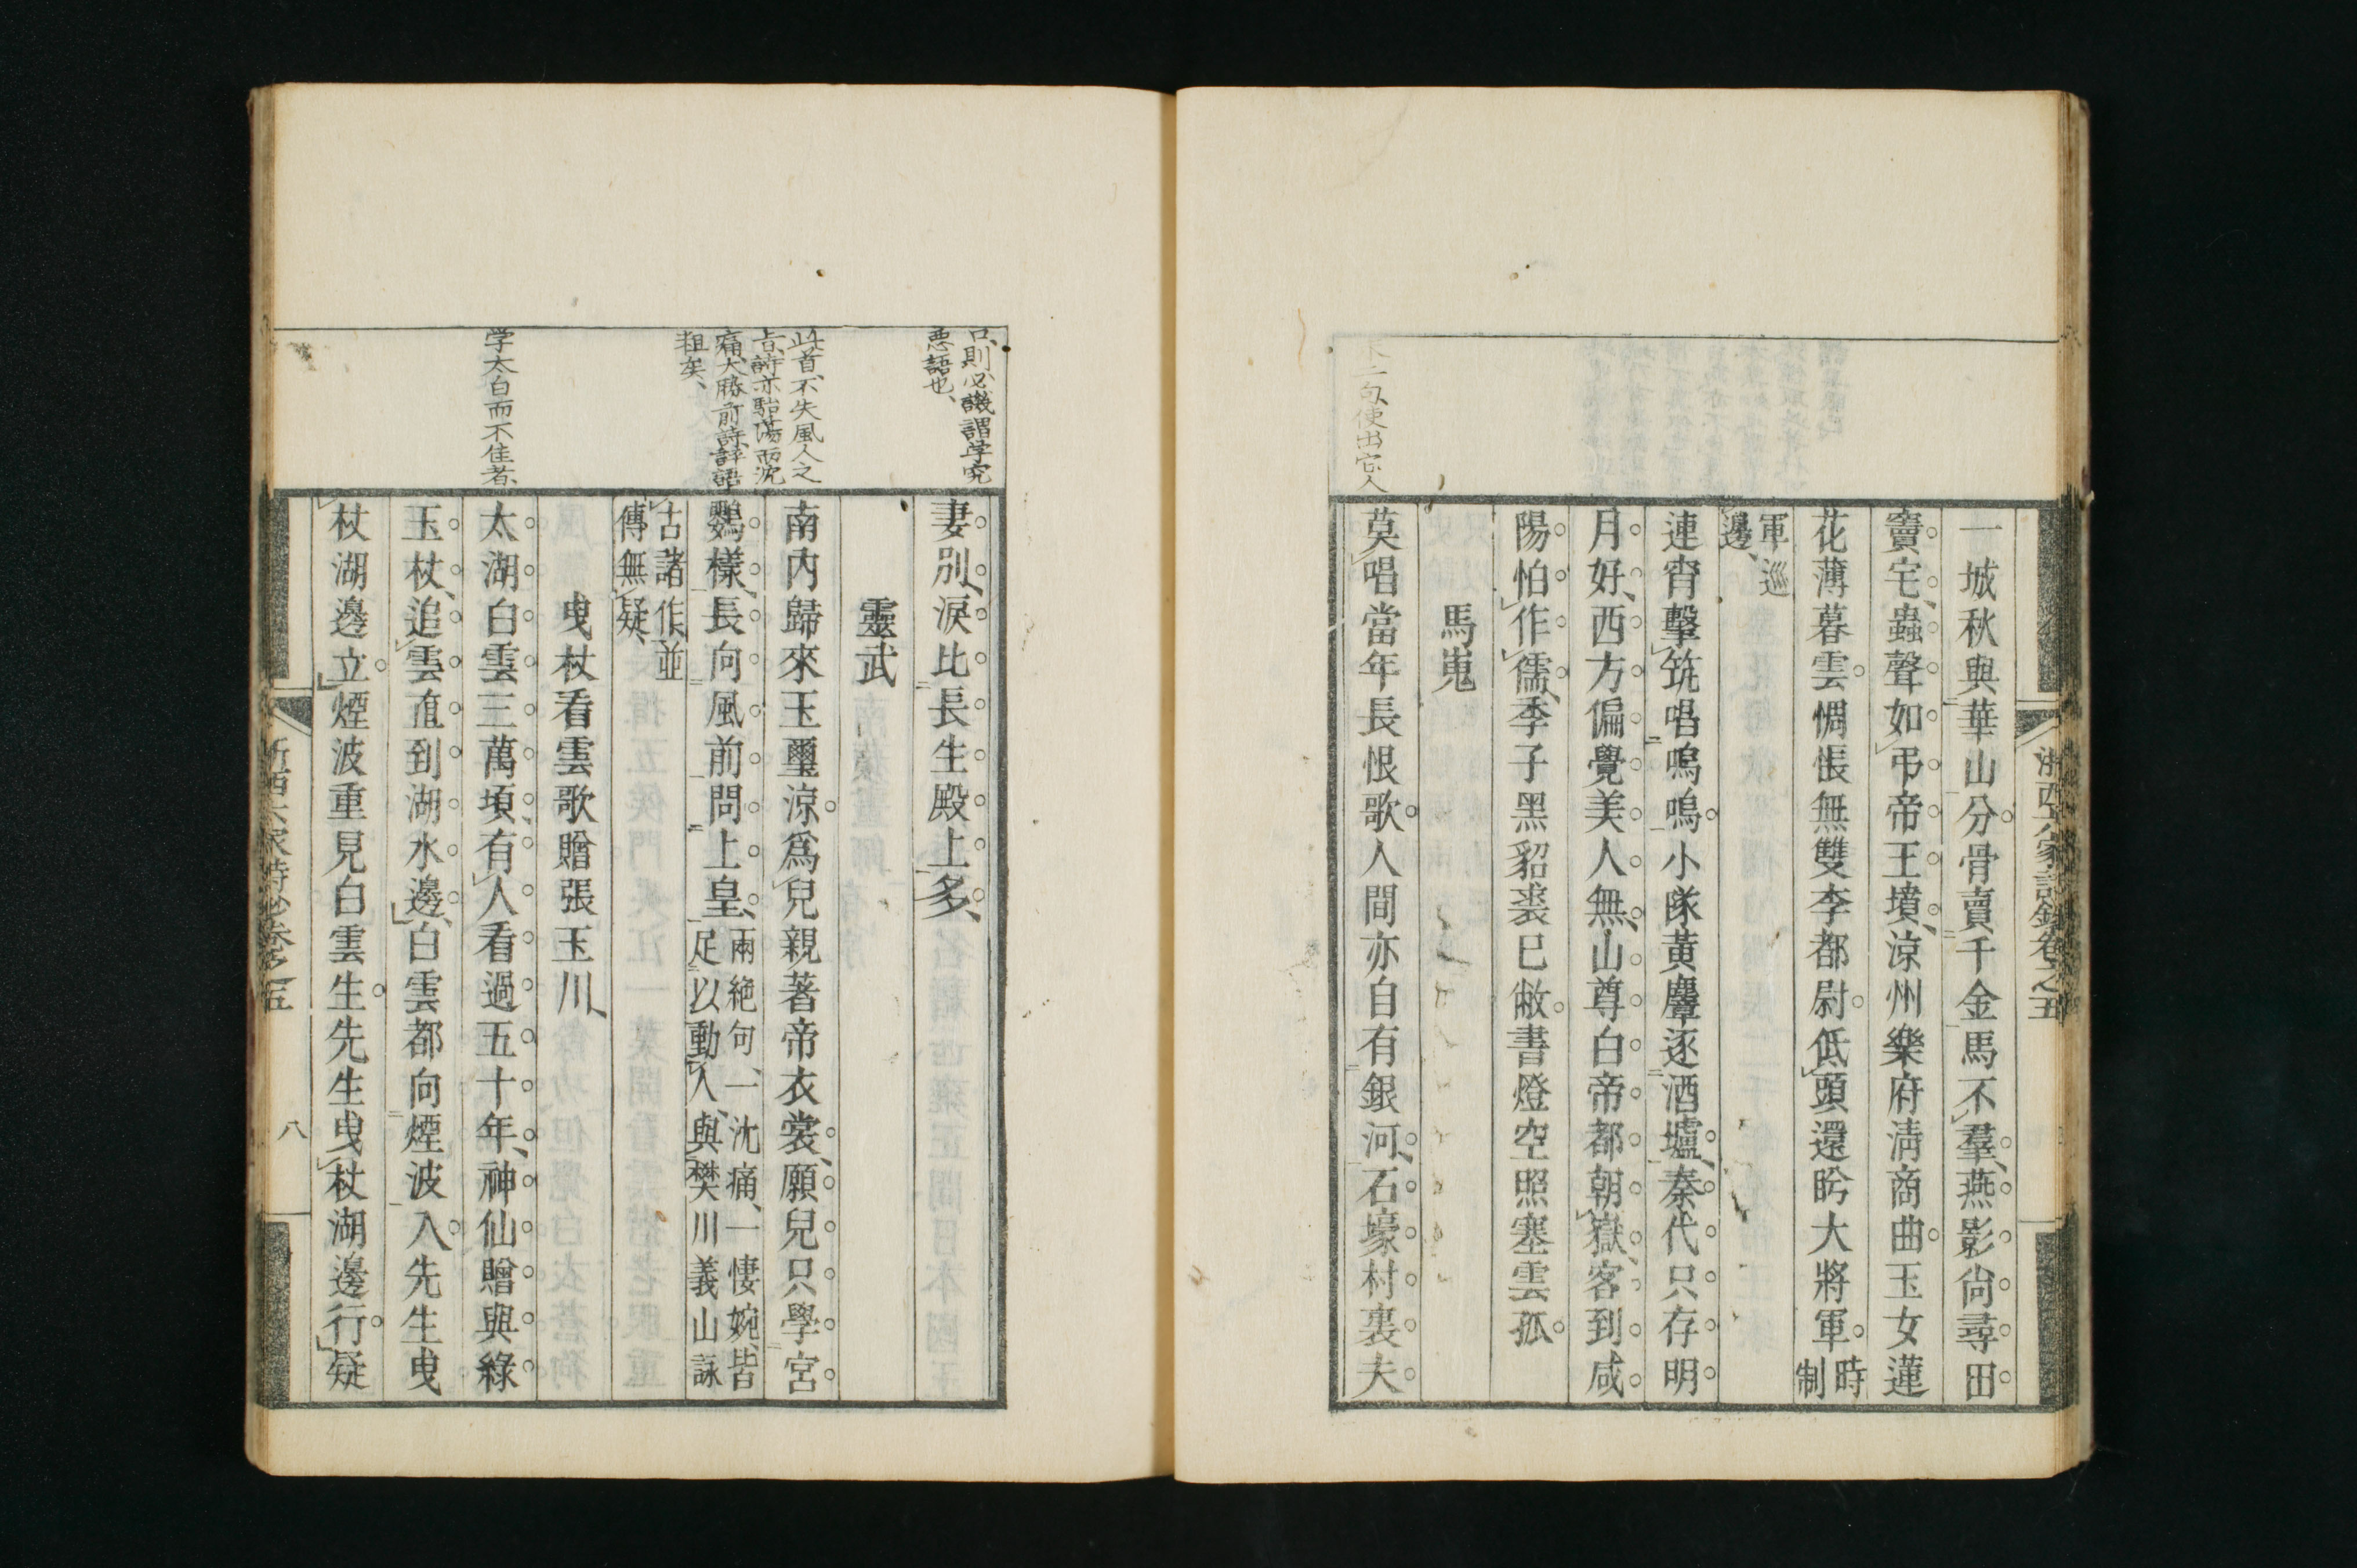 浙西六家詩鈔卷之五
一城秋與華山分骨賣千金馬不羣燕影尙尋田
竇宅蟲聲如弔帝王墳涼州樂府淸商曲玉女蓮
花薄暮雲惆悵無雙李都尉低頭還盻大將軍時制
軍巡邊
連宵擊筑唱嗚嗚小隊黃麞逐酒壚秦代只存明
月好西方偏覺美人無山尊白帝都朝嶽客到咸
陽怕作儒季子黑貂裘巳敝書燈空照塞雲孤
馬嵬
二句便出它人
莫唱當年長恨歌人間亦自有銀河石壕村裏夫
口則必譏謂学究
悪語也
妻別淚比長生殿上多
靈武
此首不失風人之
旨詩亦駘蕩而沈
痛大勝前詩辞語
粗矣
南內歸來玉璽涼爲兒親著帝衣裳願兒只學宮
鸚樣長向風前問上皇兩絶句一沈痛一悽婉皆足以動人與樊川義山詠
古諸作並傳無疑
曳杖看雲歌贈張玉川
学太白而不佳者
太湖白雲三萬頃有人看過五十年神仙贈與綠
玉杖追雲直到湖水邊白雲都向煙波入先生曳
杖湖邊立煙波重見白雲生先生曳杖湖邊行疑
浙西六家詩鈔卷之五
八